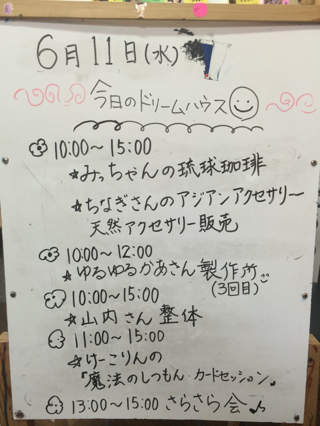 6月11日(水)
今日のドリームハウス
10:00～15:00
★みっちゃんの琉球珈琲
★ちなぎさんのアジアンアクセサリー
天然アクセサリー販売
10:00～12:00
★ゆるゆるかあさん製作所
(3回目)
10:00～15:00
★山内さん整体
11:00～15:00
★けーこりんの
「魔法のしつもん カードセッション」
13:00～15:00 さらさら会♪